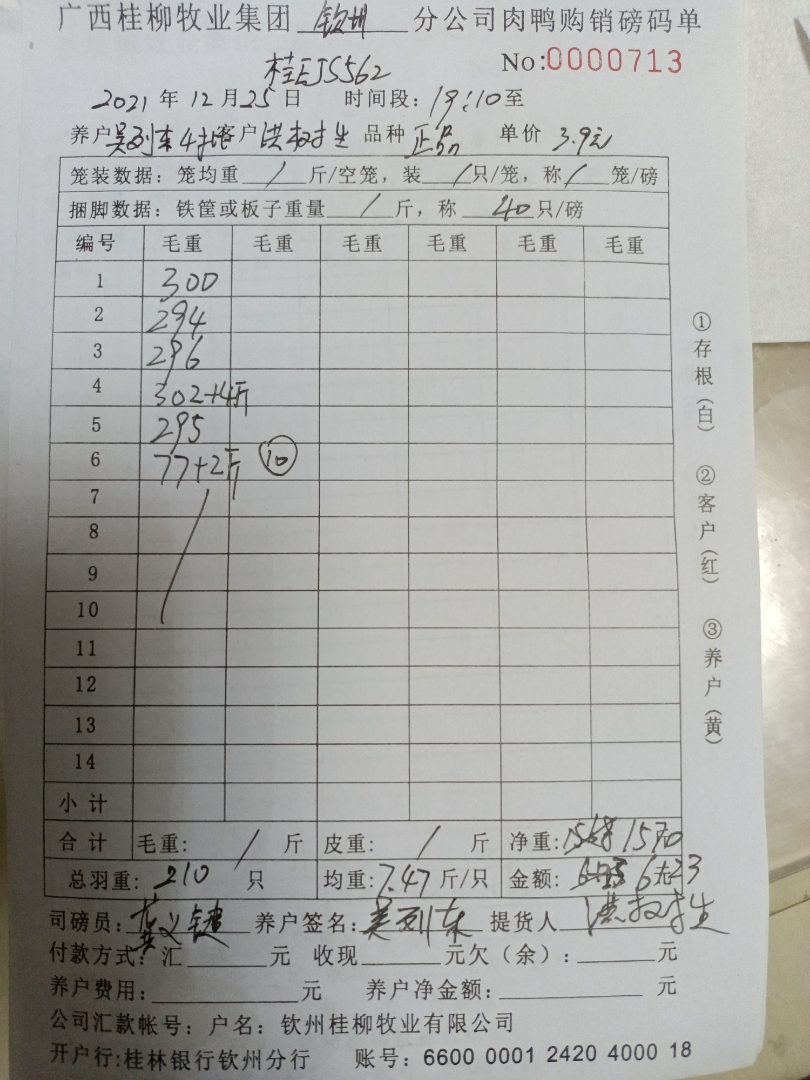 广西桂柳牧业集团 钦州 分公司肉鸭购销磅码单
No:0000713
桂EJS562
2021 年 12 月 25 日 时间段: 19:10 至
养户 吴列东4批 客户 洪权生 品种 正品 单价 3.9元
笼装数据: 笼均重 / 斤/空笼, 装 / 只/笼, 称 / 笼/磅
捆脚数据: 铁筐或板子重量 / 斤, 称 40 只/磅
编号 毛重 毛重 毛重 毛重 毛重 毛重
1 300
2 294
3 296
4 302+4斤
5 295
6 77+2斤 10
7
8
9
10
11
12
13
14
小计
合计 毛重: / 斤 皮重: / 斤 净重: 1570
总羽重: 210 只 均重: 7.47 斤/只 金额: 6123
司磅员: 养户签名: 吴列东 提货人 洪权生
付款方式: 汇 元 收现 元欠(余): 元
养户费用: 元 养户净金额: 元
公司汇款帐号: 户名: 钦州桂柳牧业有限公司
开户行:桂林银行钦州分行 账号: 6600 0001 2420 4000 18
①存根(白) ②客户(红) ③养户(黄)